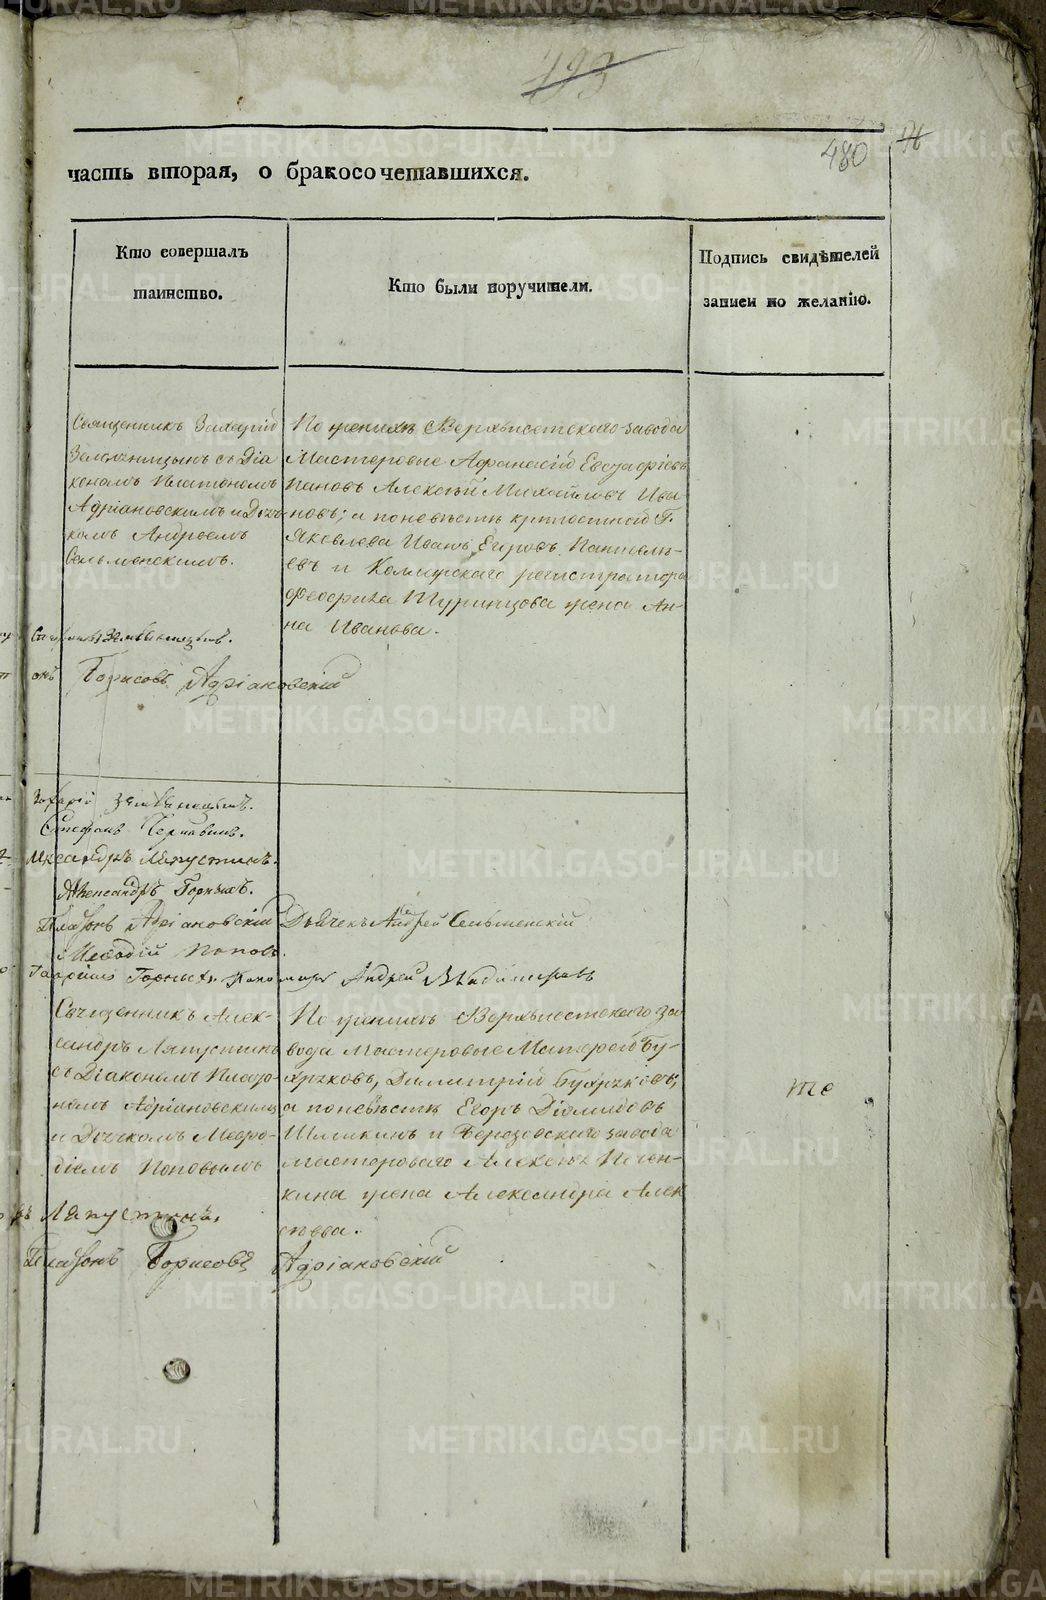 193
480
часть вторая, о бракосочетавшихся.
Кто совершалъ
таинство.
Кто были поручители.
Подпись свидѣтелей
записи по желанію.
Священникъ Захарій
съ Діа
кономъ Платономъ
Адріановскимъ и Дьяч-
комъ Андреемъ
Сельменскимъ.
По женихѣ Верхъисетскаго завода
Мастеровые Афанасій Евстафіевъ
Пановъ Алексѣй Михайловъ Ива-
новъ; а по невѣстѣ крѣпостной Г.
Яковлева Иванъ Егоровъ Пантелѣ-
евъ и Коллежскаго регистратора
Федорика Туринцова жена Ан-
на Иванова.
Борисовъ Адріановскій
Захарій
Стефанъ Чернавинъ.
Александръ Ляпустинъ.
Александръ Горныхъ.
Платонъ Адріановскій Дьячекъ Андрей Сельменскій
Меѳодій Поповъ.
Гавріилъ Горныхъ. Поно марь Андрей Владимировъ
Священникъ Алек-
сандръ Ляпустинъ
съ Діакономъ Плато-
номъ Адріановскимъ
и Дьячкомъ Меѳо-
діемъ Поповымъ
По женихѣ Верхъисетскаго за
вода мастеровые Бу-
хряковъ, Димитрій Бухряковъ;
а по невѣстѣ Егоръ Діомидовъ
Шишкинъ и Березовскаго завода
мастероваго Алексѣя Печен-
кина жена Александра Алек
сѣева.
Ляпустинъ.
Платонъ Борисовъ Адріановскій
METRIKI.GASO-URAL.RU